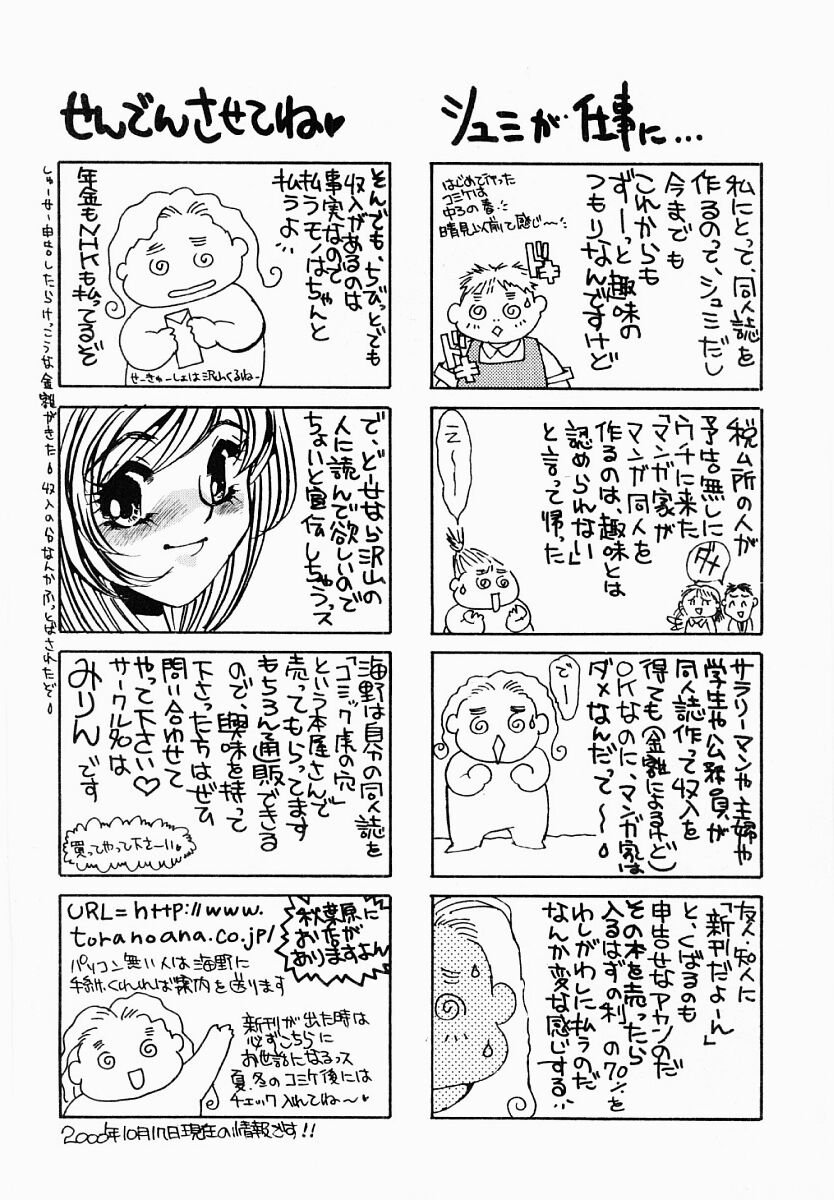 シュミが仕事に…
私にとって、同人誌を
作るのって、シュミだし
今までも
これからも
ずーーっと趣味の
つもりなんですけど
はじめて行った
コミケは
中3の春
晴見以前って感じ〜
税ム所の人が
予告無しに
ウチに来た
「マンガ家が
マンガ同人を
作るのは、趣味とは
認められない」
と言って帰った
ダメ
えーー
サラリーマンや主婦や
学生や公務員が
同人誌作って収入を
得ても(金額によるけど)
OKなのに、マンガ家は
ダメなんだって〜
でー
友人・知人に
「新刊だよーん」
と、くばるのも
申告せなアカンのだ
その本を売ったら
入るはずの利 の70%を
わしがわしに払うのだ
なんか変な感じする
せんでんさせてね♥
そんでも、ちびっとでも
収入があるのは
事実なので
払うモノはちゃんと
払うよ…
年金もNHKも払ってるぞ
せーきゅーしょは沢山くるねー
しゅーせー申告したらけっこうな金額がきた 収入の
なんかふっとばされたぞ
で、ど〜せなら沢山の
人に読んで欲しいので
ちょいと宣伝しちゃうっス
海野は自分の同人誌を
「コミック虎の穴」
という本屋さんで
売ってもらってます
もちろん通販できる
ので、興味を持って
下さった方はぜひ
問い合わせて
やって下さい♡
サークル名は
みりんです
買ってやって下さーい
URL=http://www.
toranoana.co.jp/
秋葉原に
お店が
ありますよん
パソコン無い人は海野に
手紙くれれば案内を送ります
新刊が出た時は
必ずこちらに
お世話になるっス
夏、冬のコミケ後には
チェック入れてね〜
2000年10月17日現在の情報です!!